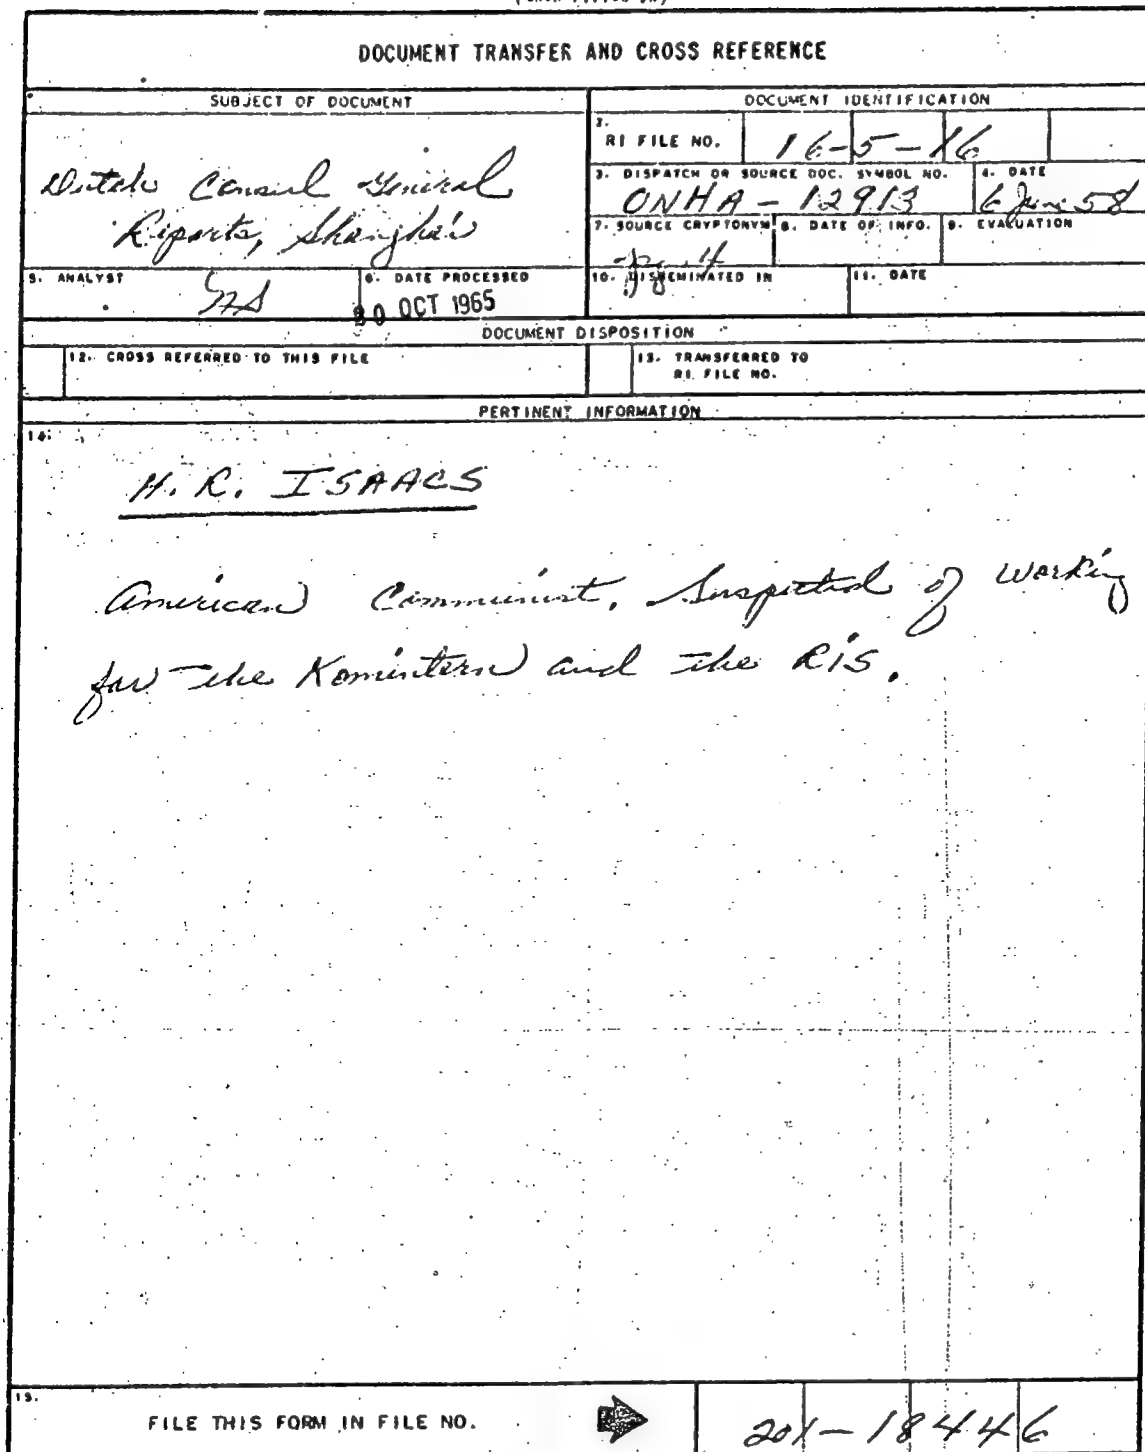 DOCUMENT TRANSFER AND CROSS REFERENCE
SUBJECT OF DOCUMENT
Dutch Consul General
Reports, Shanghai
5. ANALYST
6. DATE PROCESSED
20 OCT 1965
DOCUMENT IDENTIFICATION
2. RI FILE NO.
16-5-16
3. DISPATCH OR SOURCE DOC. SYMBOL NO.
ONHA - 12913
4. DATE
6 June 58
7. SOURCE CRYPTONYM
8. DATE OF INFO.
9. EVALUATION
pg. 4
10. DISSEMINATED IN
11. DATE
DOCUMENT DISPOSITION
12. CROSS REFERRED TO THIS FILE
13. TRANSFERRED TO
RI FILE NO.
PERTINENT INFORMATION
14.
H. R. ISAACS
American Communist, Suspected of Working
for the Komintern and the RIS.
15.
FILE THIS FORM IN FILE NO.
201-18446